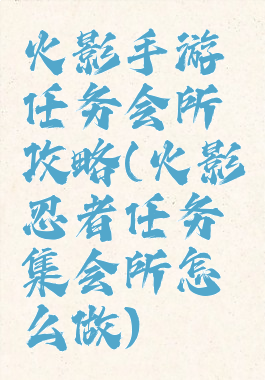 火影手游
任务会所
攻略(火影
忍者任务
集会所怎
么做)